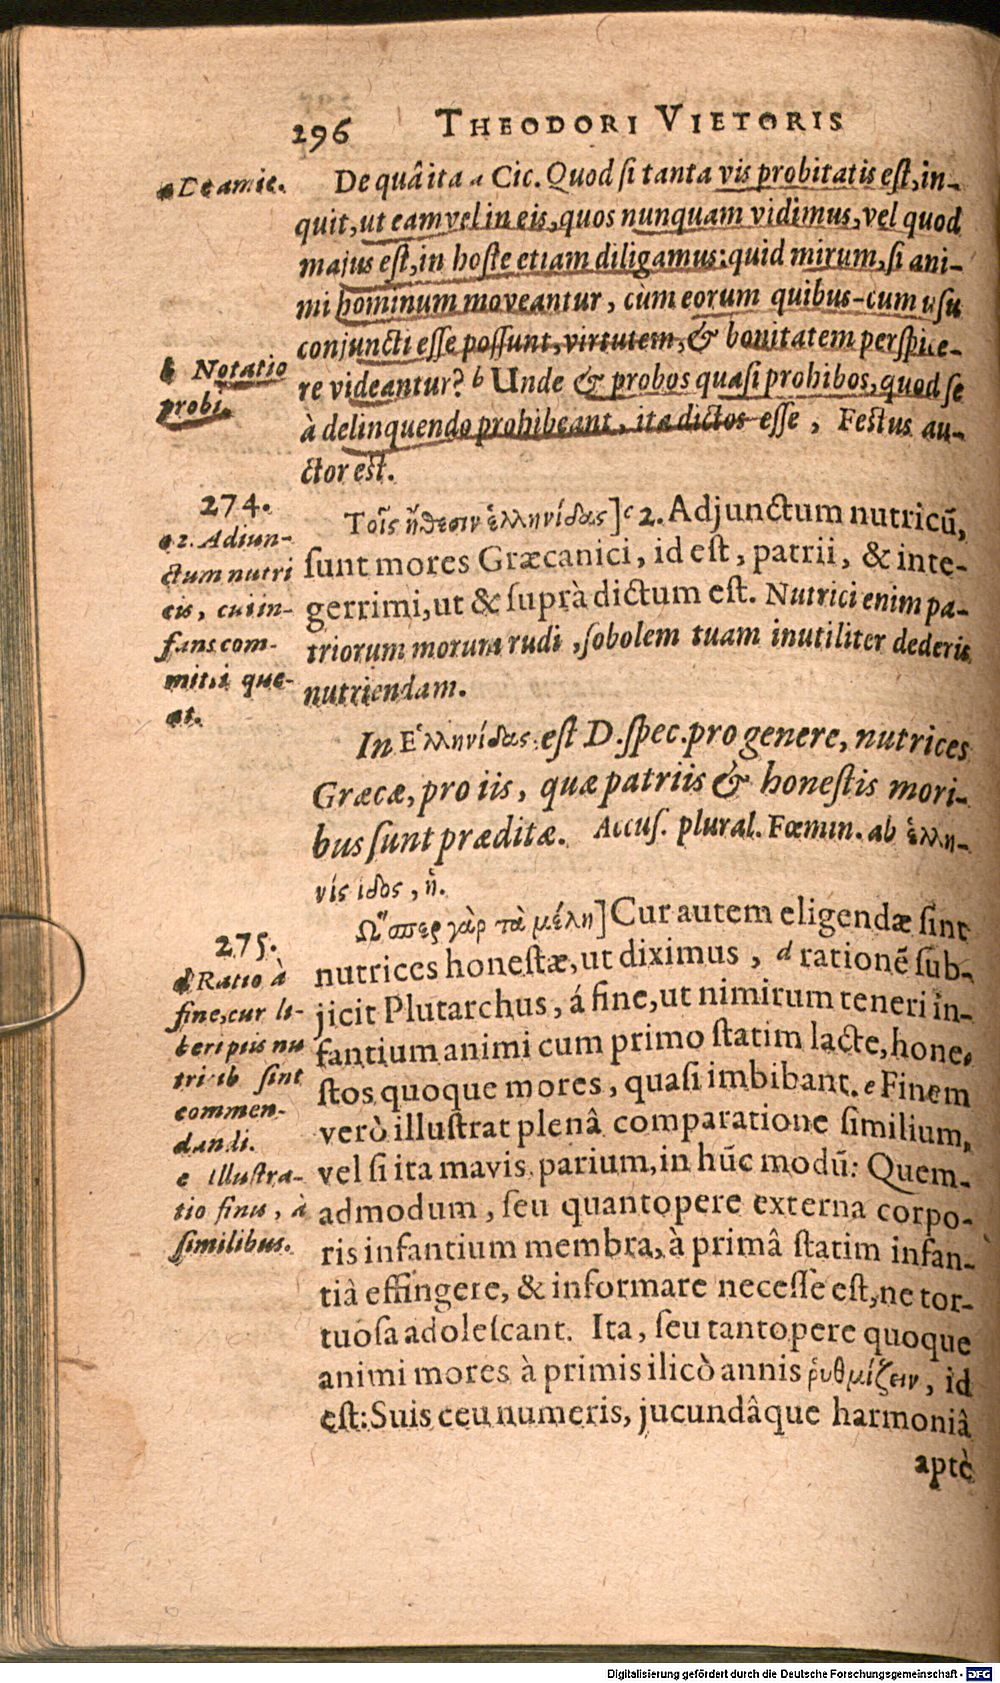 296 THEODORI VIETORIS
a De amic.
De quâ ita a Cic. Quod si tanta vis probitatis est, in-
quit, ut eam vel in eis, quos nunquam vidimus, vel quod
majus est, in hoste etiam diligamus: quid mirum, si ani-
mi hominum moveantur, cùm eorum quibus-cum usu
conjuncti esse possunt, virtutem, & bonitatem perspice-
re videantur? b Unde & probos quasi prohibos, quod se
à delinquendo prohibeant, ita dictos esse, Festus au-
ctor est.
b Notatio
probi.
274.
c 2. Adiun-
ctum nutri
cis, cui in-
fans com-
mitti que-
at.
Τοῖς ἤθεσιν ἑλληνίδας] c 2. Adjunctum nutricū,
sunt mores Græcanici, id est, patrii, & inte-
gerrimi, ut & suprà dictum est. Nutrici enim pa-
triorum morum rudi, sobolem tuam inutiliter dederis
nutriendam.
In Ἑλληνίδας est D. spec. pro genere, nutrices
Græcæ, pro iis, quæ patriis & honestis mori-
bus sunt præditæ. Accus. plural. Fœmin. ab ἑλλη-
νίς ιδος, ἡ.
275.
d Ratio à
fine, cur li-
beri piis nu
tricib sint
commen-
dandi.
e Illustra-
tio finis, à
similibus.
Ὥσπερ γὰρ τὰ μέλη] Cur autem eligendæ sint
nutrices honestæ, ut diximus, d rationē sub-
jicit Plutarchus, á fine, ut nimirum teneri in-
fantium animi cum primo statim lacte, hone-
stos quoque mores, quasi imbibant. e Finem
verò illustrat plenâ comparatione similium,
vel si ita mavis parium, in hūc modū: Quem-
admodum, seu quantopere externa corpo-
ris infantium membra, à primâ statim infan-
tiâ effingere, & informare necesse est, ne tor-
tuosa adolescant. Ita, seu tantopere quoque
animi mores à primis ilicò annis ῥυθμίζειν, id
est: Suis ceu numeris, jucundâque harmoniâ
aptè
Digitalisierung gefördert durch die Deutsche Forschungsgemeinschaft - DFG